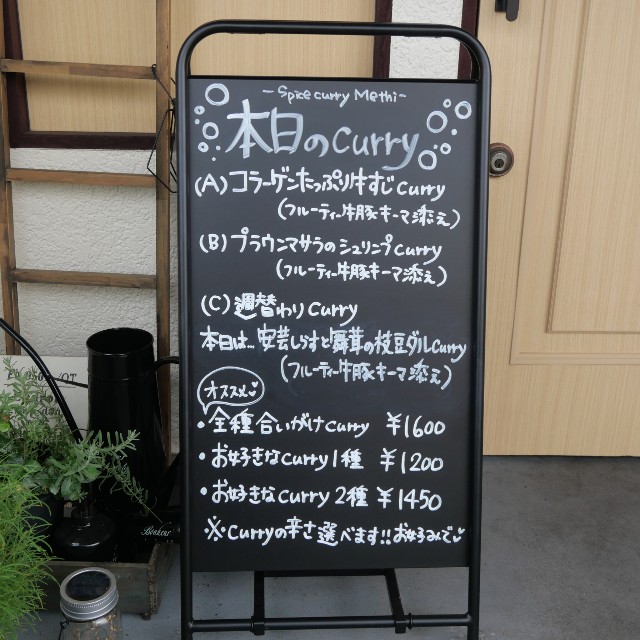 - Spice curry Methi -
本日のcurry
(A) コラーゲンたっぷり牛すじcurry
(フルーティー牛豚キーマ添え)
(B) プラウンマサラのシュリンプcurry
(フルーティー牛豚キーマ添え)
(C) 週替わりcurry
本日は…安芸しらすと舞茸の枝豆ダルcurry
(フルーティー牛豚キーマ添え)
オススメ♥
・全種合いがけcurry ¥1600
・お好きなcurry1種 ¥1200
・お好きなcurry 2種 ¥1450
※・curryの辛さ選べます!!お好みで♥